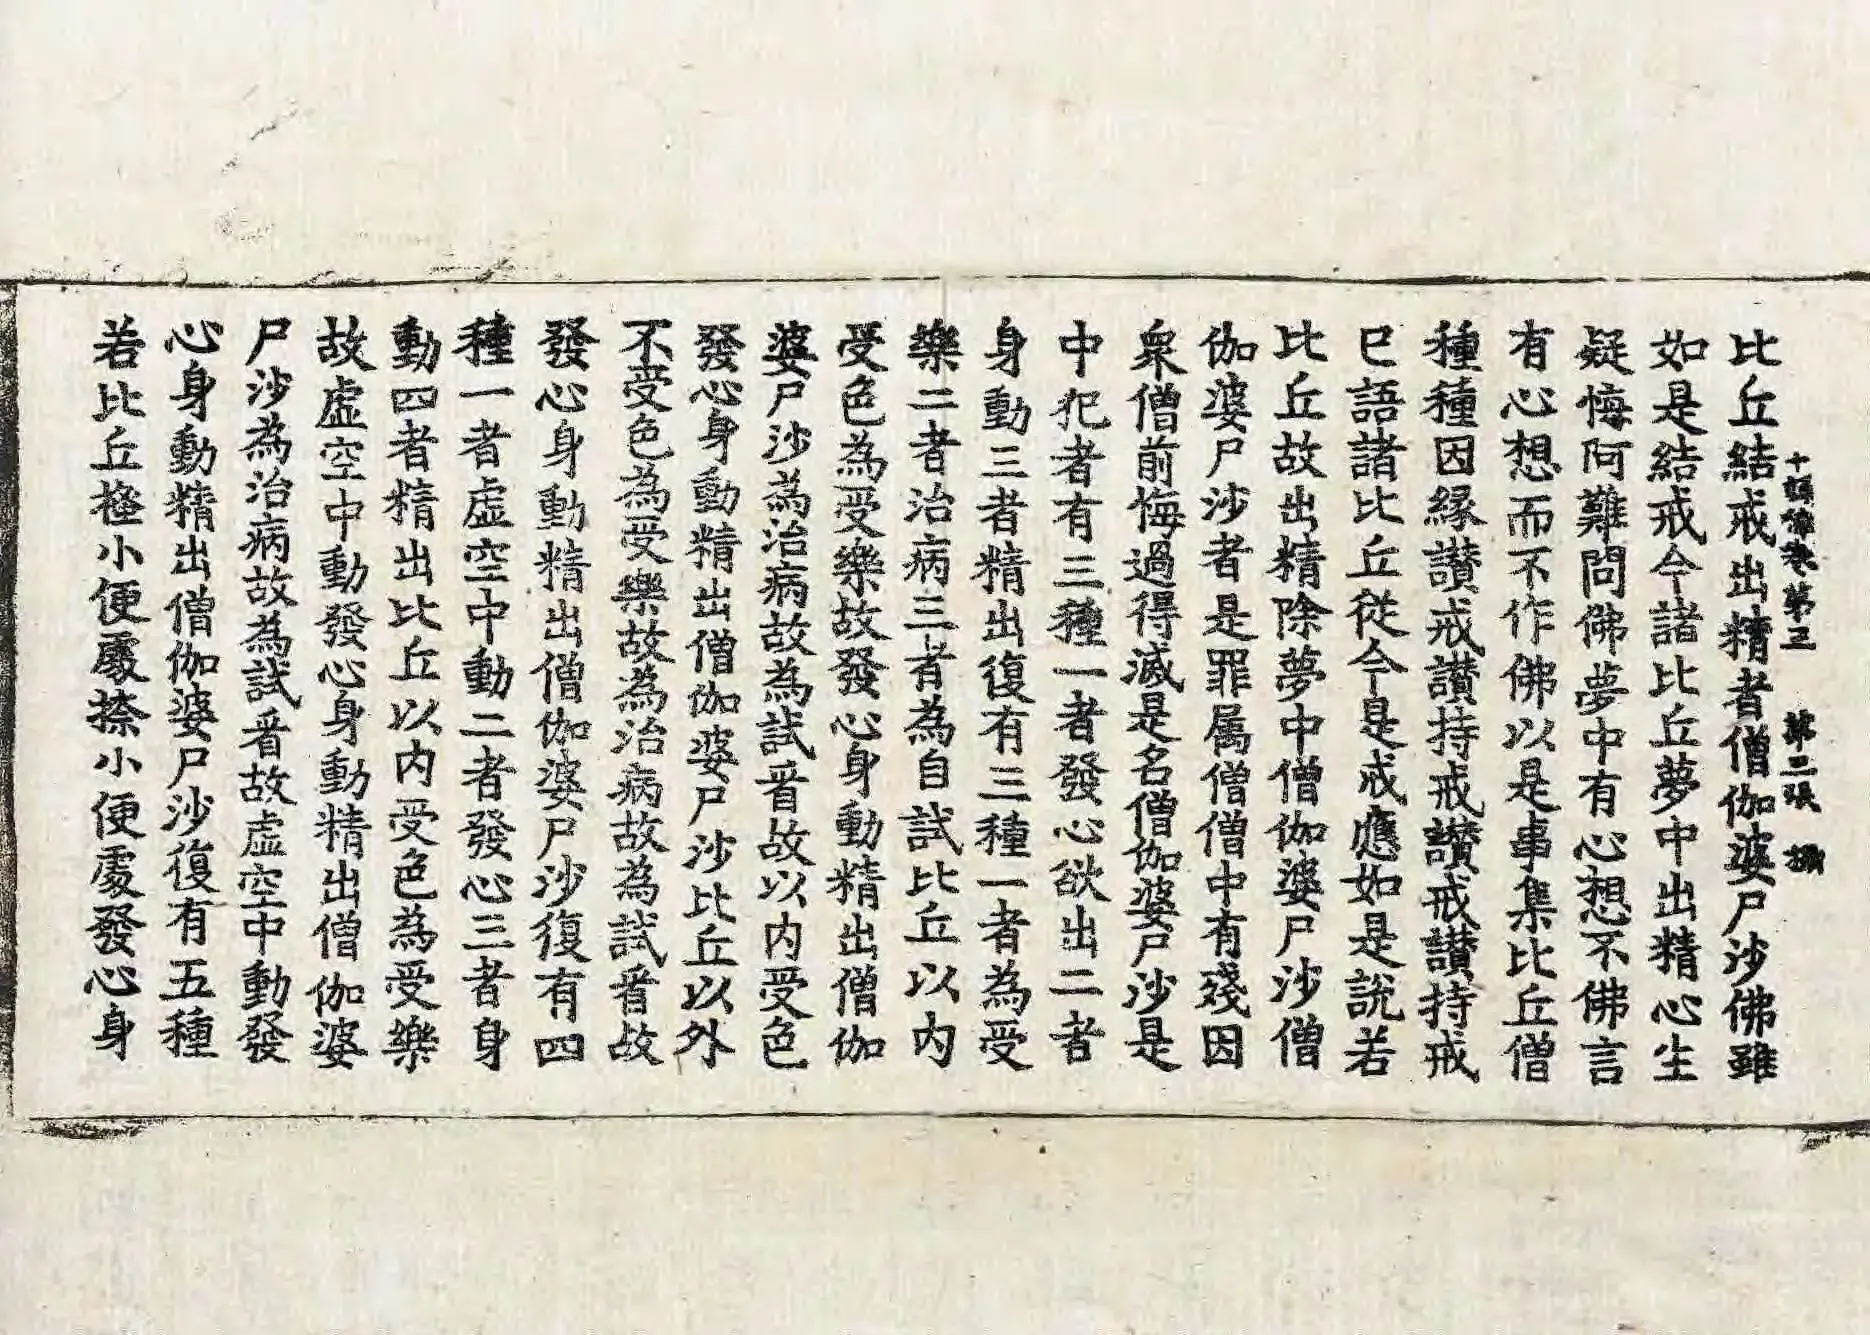 比丘結戒出精者僧伽婆尸沙佛雖
十誦律卷第三 第二張 攝
如是結戒今諸比丘夢中出精心生
疑悔阿難問佛夢中有心想不佛言
有心想而不作佛以是事集比丘僧
種種因緣讃戒讃持戒讃戒讃持戒
已語諸比丘從今是戒應如是說若
比丘故出精除夢中僧伽婆尸沙僧
伽婆尸沙者是罪属僧僧中有殘因
衆僧前悔過得滅是名僧伽婆尸沙是
中犯者有三種一者發心欲出二者
身動三者精出復有三種一者為受
樂二者治病三者為自試比丘以内
受色為受樂故發心身動精出僧伽
婆尸沙為治病故為試看故以内受色
發心身動精出僧伽婆尸沙比丘以外
不受色為受樂故為治病故為試看故
發心身動精出僧伽婆尸沙復有四
種一者虛空中動二者發心三者身
動四者精出比丘以内受色為受樂
故虛空中動發心身動精出僧伽婆
尸沙為治病故為試看故虛空中動發
心身動精出僧伽婆尸沙復有五種
若比丘搔小便處捺小便處發心身